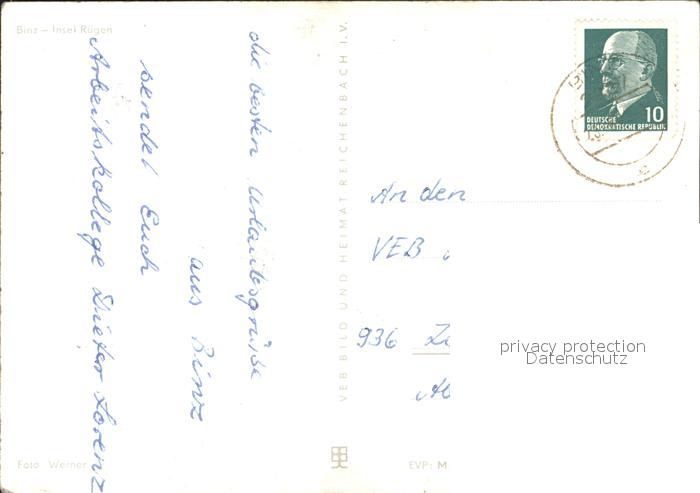 Binz – Insel Rügen
die besten Urlaubsgrüße
aus Binz
sendet Euch
Arbeitskollege Dieter Lorenz
Foto Werner
VEB BILD UND HEIMAT REICHENBACH I.V.
EVP: M
10
DEUTSCHE
DEMOKRATISCHE REPUBLIK
An den
VEB
936
privacy protection
Datenschutz